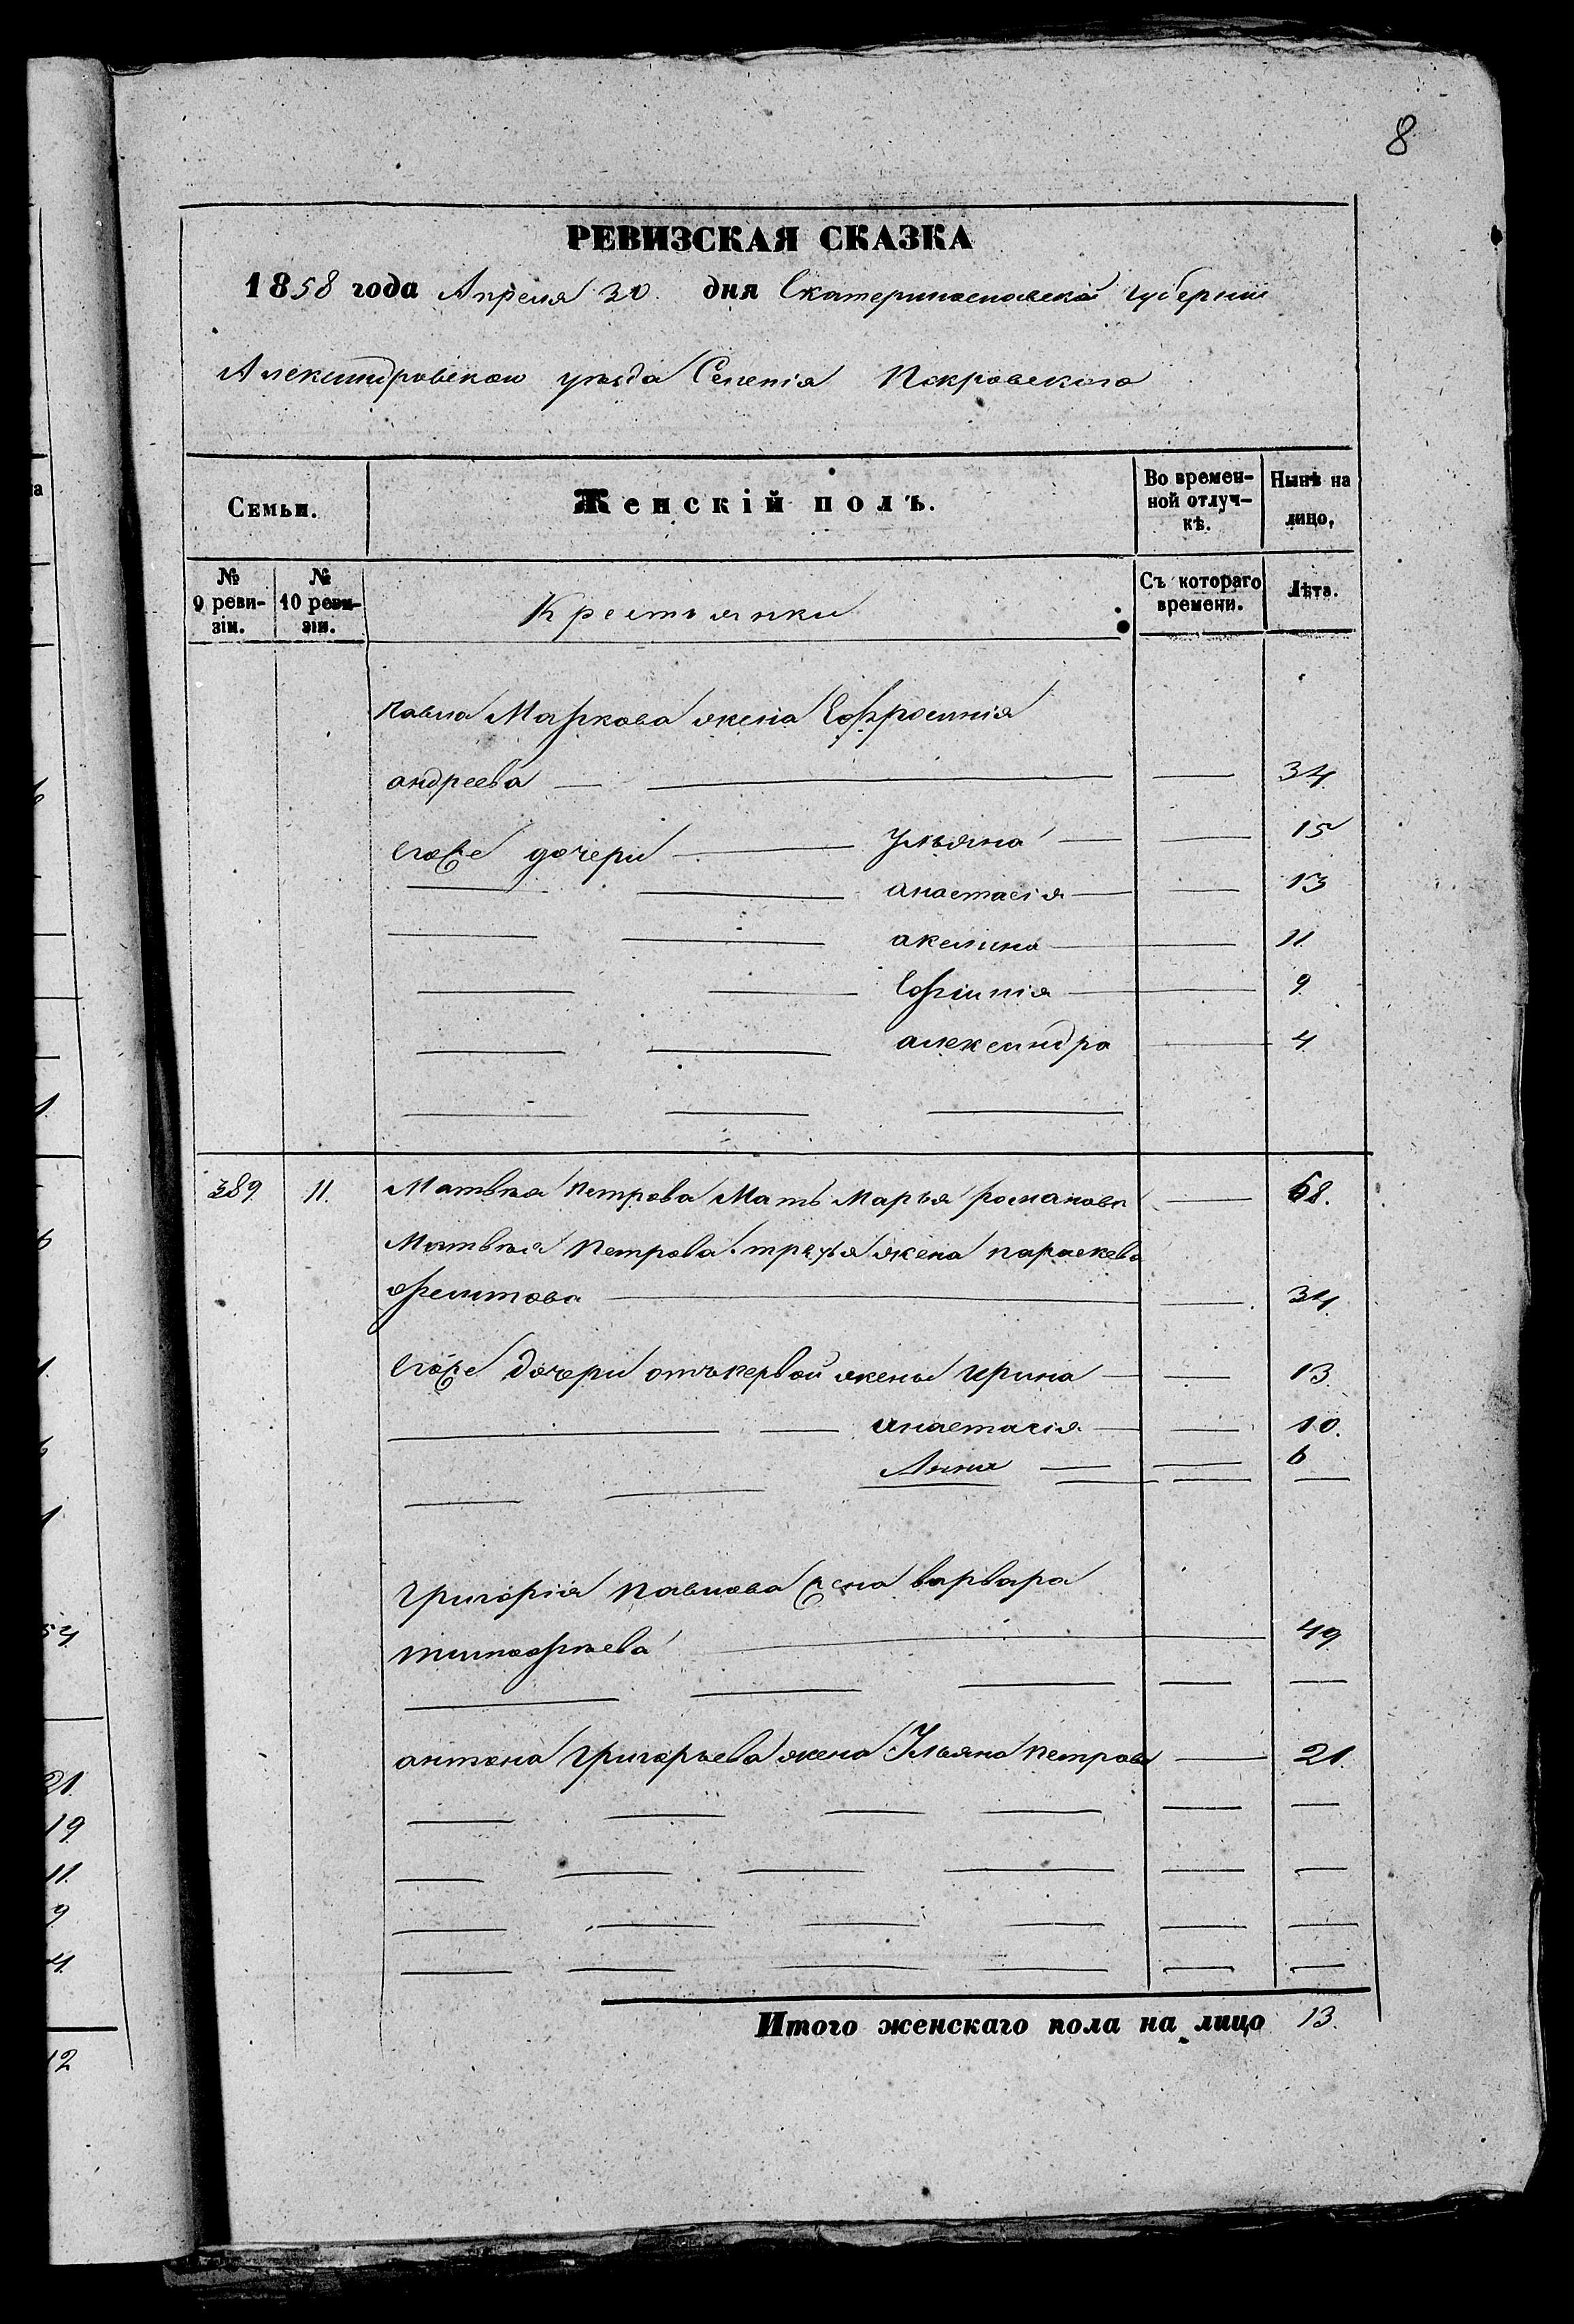 8
РЕВИЗСКАЯ СКАЗКА
1858 года Апреля 30. дня Екатеринославской губернии
Александровскаго уѣзда Селенія Покровскаго
Семьи.
Женскій полъ.
Во времен-
ной отлуч-
кѣ.
Нынѣ на
лицо,
№
9 реви-
зіи.
№
10 реви-
зіи.
Крестьянки
Съ котораго
времени.
Лѣта.
Павла Маркова жена Ефросинія
андреева — — — 34.
Егоже дочери — Ульяна — — 15
— — анастасія — — 13
— — акелина — 11.
— — Ефимія — 9.
— — александра — 4.
389. 11. Матвѣя Петрова Мать Марья романова — 68.
Матвѣя Петрова третья жена параскева
— 34.
Егоже дочери отъ первой жены Ирина — — 13.
— — анастасія — — 10.
Анна — — 6
Григорія Павлова жена варвара
тимофѣева — 49
антона Григорьева жена Ульяна Петрова — 21.
Итого женскаго пола на лицо 13.
а
1.
54
21.
19
11.
9
4.
12